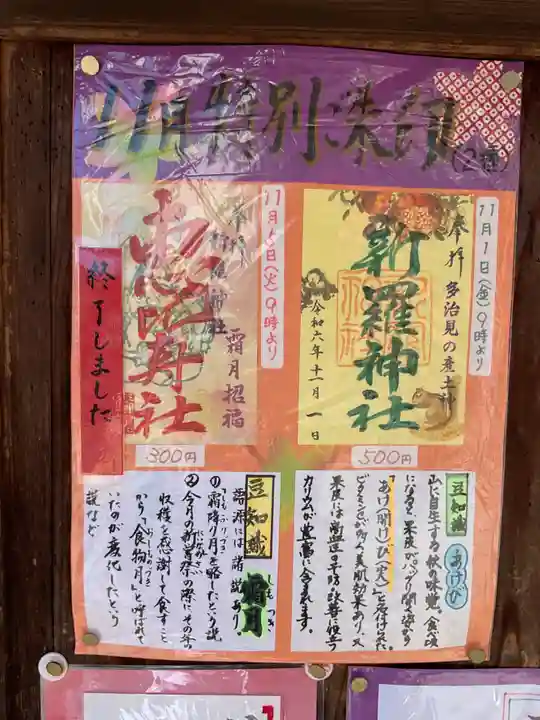 11月特別朱印
(2種)
11月1日(金)9時より
奉拝 多治見の産土神
新羅神社
令和六年十一月一日
500円
11月5日(火)9時より
奉拝
霜月招福
恵比寿社
終了しました
300円
豆知識 あけび
山に自生する秋の味覚。食べ頃
になると、果皮がパックリ開く姿から
「あけ(開け)び(実)」と名付けられた。
果皮には
カリウムが豊富に含まれます。
豆知識 霜月
しも つき
語源には諸説あり
①「霜降り月」を略したという説
しもふりづき
②今月の新嘗祭の際に、その年の
にいなめさい
収穫を感謝して食すこと
から「食物月」と呼ばれて
おしものづき
いたのが変化したという
説など